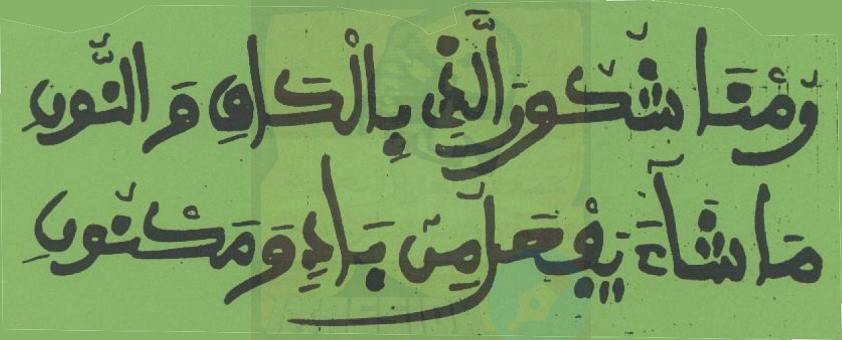 رُمْنَا شُكُورَ الَّذِي بِالْكَافِ وَ النُّونِ
مَا شَآءَ يَفْعَلُ مِنْ بَادٍ وَمَكْنُونِ